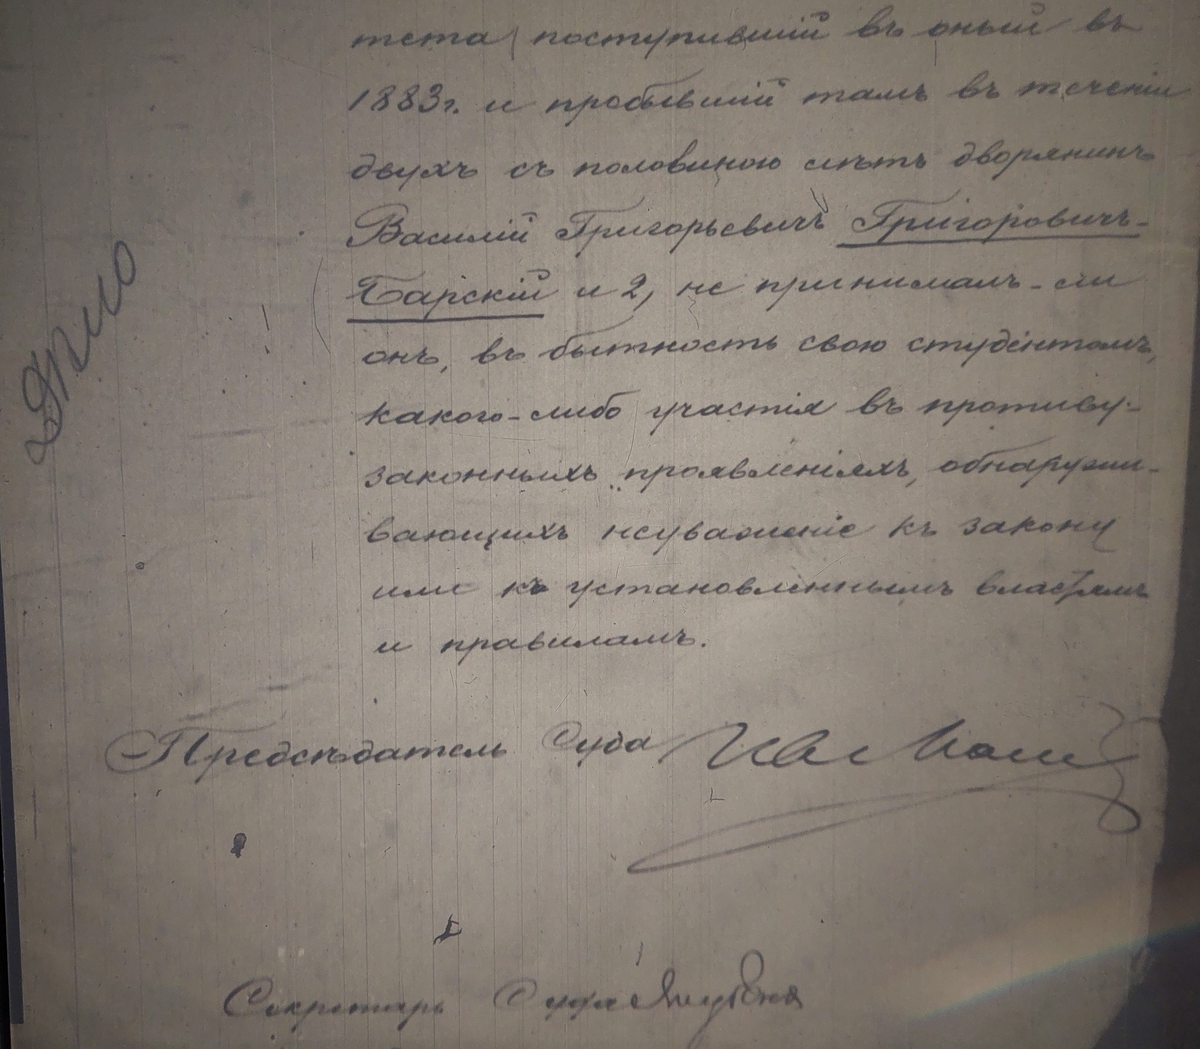 тета, поступившій въ оный въ
1883г. и пробывшій тамъ въ теченіи
двухъ съ половиною лѣтъ дворянинъ
Василій Григорьевичъ Григоровичъ-
Барскій и 2, не принималъ-ли
онъ, въ бытность свою студентомъ,
какого-либо участія въ противу-
законныхъ проявленіяхъ, обнаружи-
вающихъ неуваженіе къ закону
или къ установленнымъ властямъ
и правиламъ.
Предсѣдатель Суда
Секретарь Суда